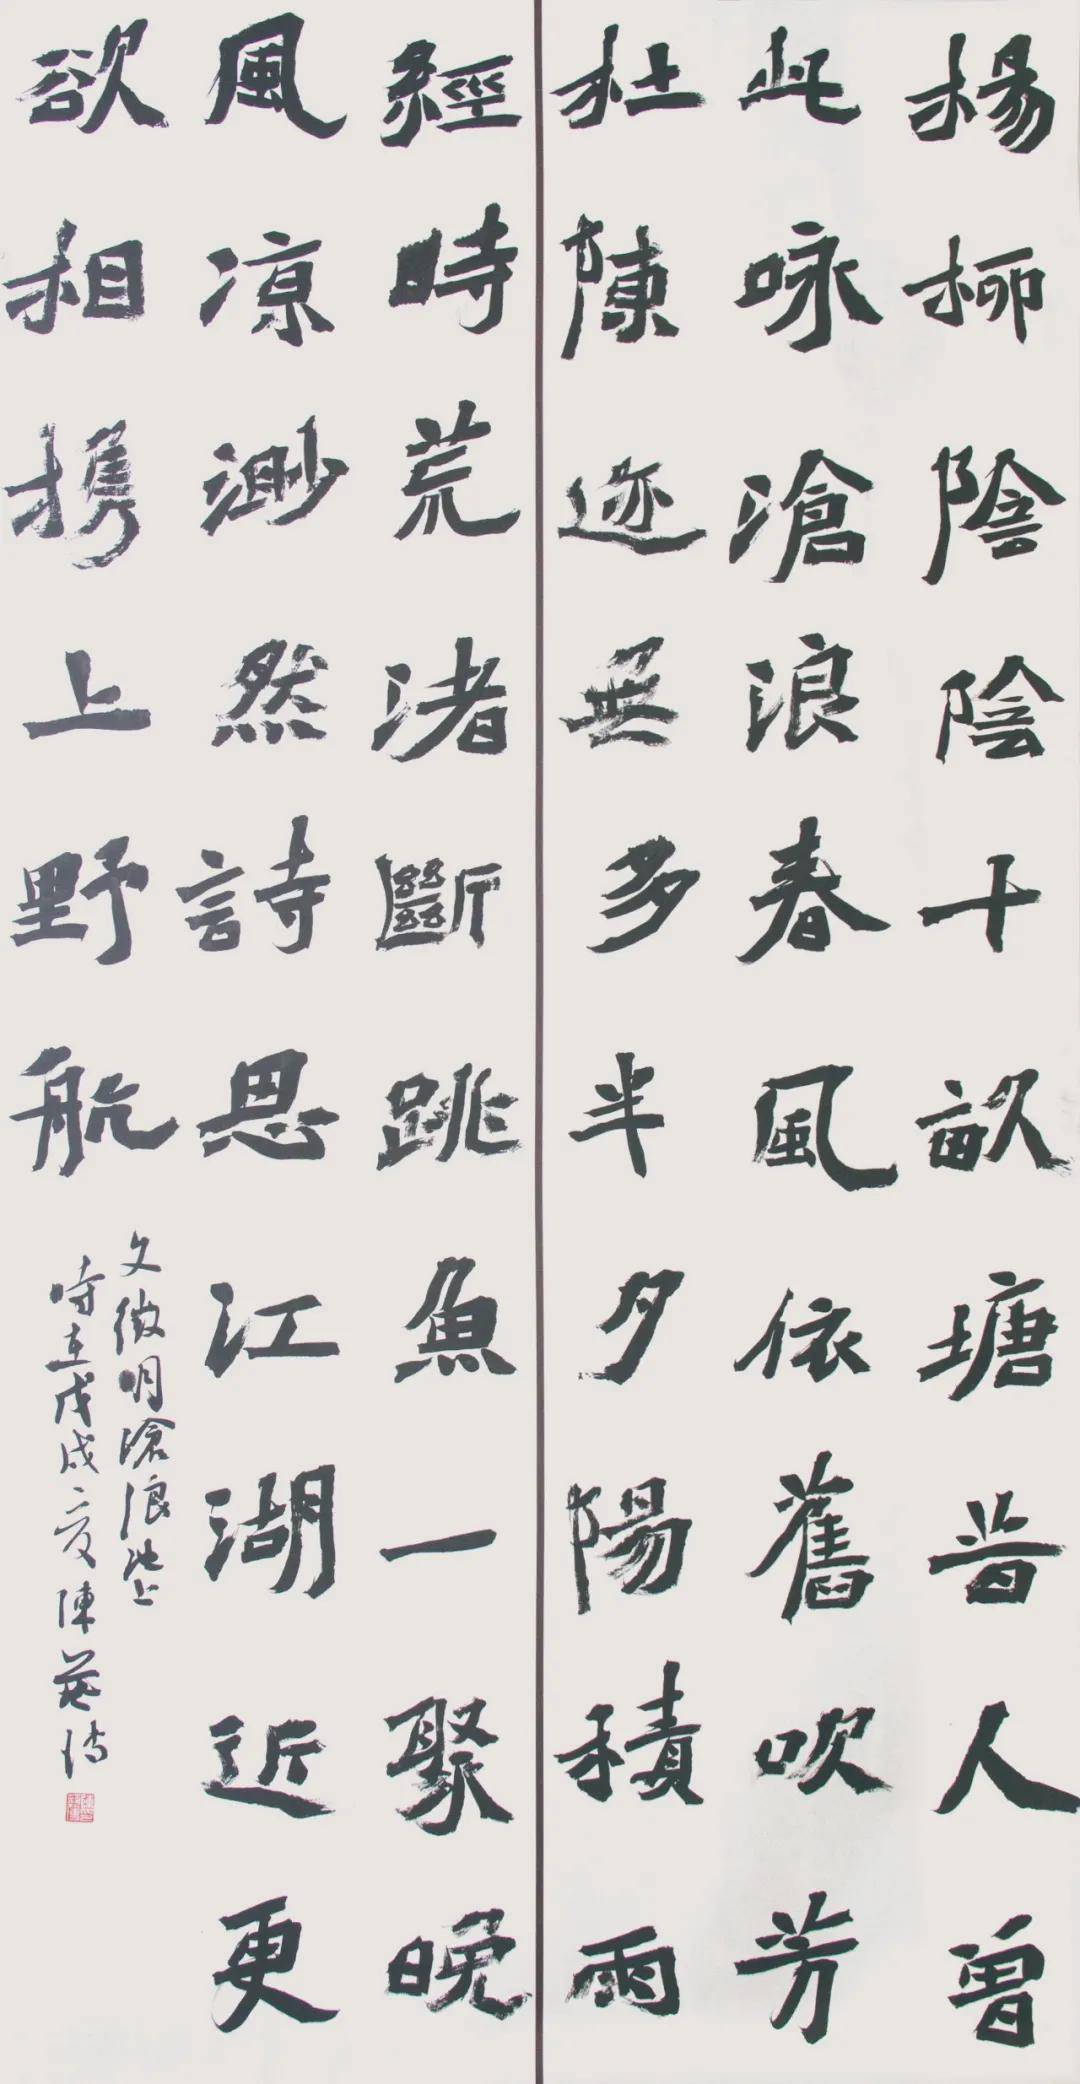 楊柳陰陰十畝瑭昔人曾
此咏滄浪春風依舊吹芳
杜陳迹無多半夕陽積雨
經時荒渚斷跳魚一聚晚
風凉渺然詩思江湖近更
欲相携上野航
文徵明滄浪池上
時在戊戌夏陳英濤